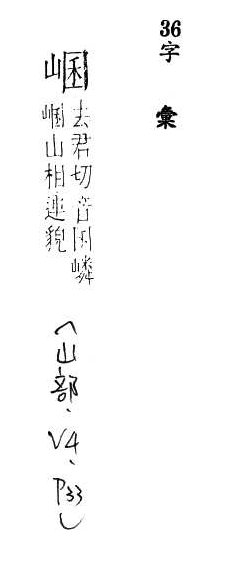 36字 彙
㟒
去君切音囷嶙
㟒山相連貌
(山部、V4、P33)